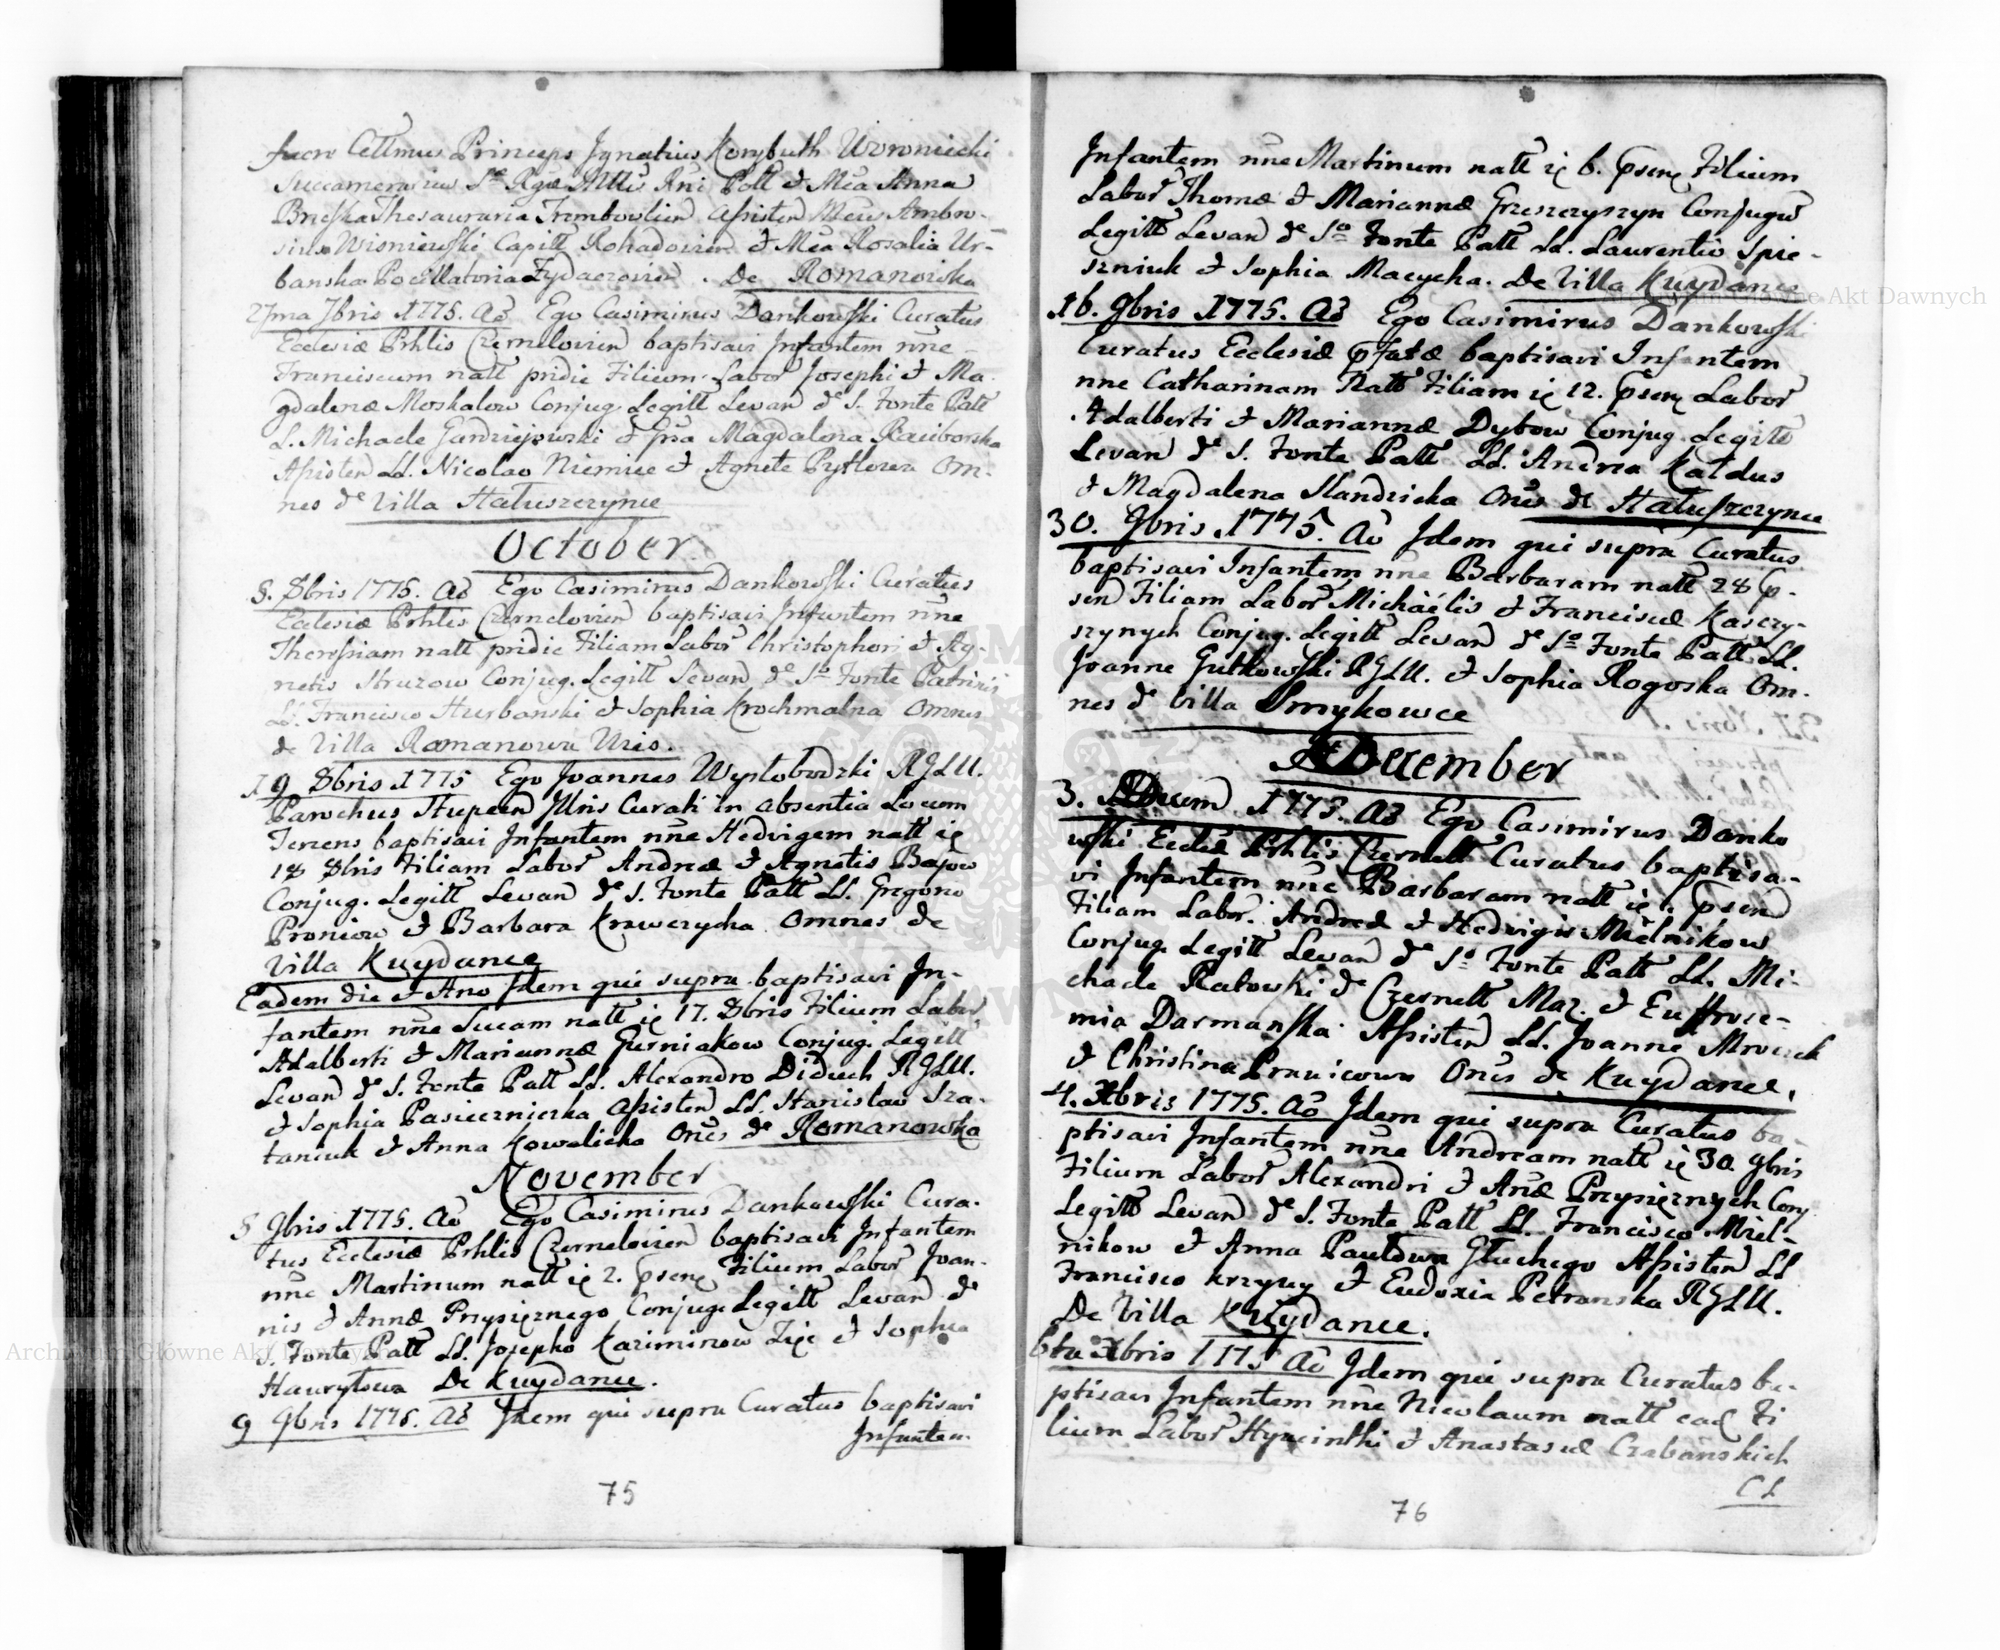 fuere Cellmus Princeps Ignatius Korybuth Woroniecki
Succamerarius Sae Rgae Mttis Rni Poll & Mca Anna
Brieska Thesauraria Trembowlien Assisten Mcus Ambro-
sius Wisniewski Capitt & Mca Rosalia Ur-
banska Pocillatoria Zydaczovien. De Romanowska
27ma 7bris 1775. Ao Ego Casimirus Dankowski Curatus
Ecclesiæ Prhlis Czernelovien baptisavi Infantem nñe
Franciscum natt pridie Filium Labor Josephi & Ma
gdalenæ Moskalow Conjug Legitt Levan de S. Fonte Patt
L. Michaele Gardziejowski & Gsa Magdalena Raciborska
Assisten LL. Nicolao Niemiec & Agnete Pytlowa Om-
nes de Villa Hałuszczynce
October
8. 8bris 1775. Ao Ego Casimirus Dankowski Curatus
Ecclesiæ Prhlis Czernelovien baptisavi Infantem nñe
Theressiam natt pridie Filiam Labor Christophori & Ag-
netis Struzow Conjug. Legitt Levan de So Fonte Patrinis
LL. Francisco Hurbanski & Sophia Krochmalna Omnes
de Villa Romanowa Wies.
19 8bris 1775 Ego Joannes Wysłobodzki RGLU.
Parochus Stupcen Illris Curati in absentia Locum
Tenens baptisavi Infantem nñe Hedvigem natt ie
18 8bris Filiam Labor Andreæ & Agnetis Bajow
Conjug. Legitt Levan de S. Fonte Patt LL. Gregorio
Proniow & Barbara Krawczycha Omnes de
Villa Kuydance
Eadem die & Ano Idem qui supra baptisavi In-
fantem nñe Lucam natt ie 17. 8bris Filium Labor
Adalberti & Mariannæ Gurniakow Conjug. Legitt
Levan de S. Fonte Patt LL. Alexandro Diduch RGLU.
& Sophia Pasiecznicka Assisten LL. Stanislao Sza-
taniuk & Anna Kowalicha Ones de Romanowska
November
8 9bris 1775. Ao Ego Casimirus Dankowski Cura-
tus Ecclesiæ Prhlis Czernelovien baptisavi Infantem
nñe Martinum natt ie 2. psene Filium Labor Joan-
nis & Annæ Przysięznego Conjug Legitt Levan de
S. Fonte Patt LL. Josepho Kazimirow Zięć & Sophia
Hawryłowa De Kuydance.
9 9bris 1775. Ao Idem qui supra Curatus baptisavi
Infantem
75
Infantem nñe Martinum natt ie 6. psene Filium
Labor Thomæ & Mariannæ Grzeszczyszyn Conjugu
Legitt Levan de So Fonte Patt LL. Laurentio Spie-
szniuk & Sophia Macycha. De Villa Kuydance
16. 9bris 1775. Ao Ego Casimirus Dankowski
Curatus Ecclesiæ pfatæ baptisavi Infantem
nne Catharinam Natt Filiam ie 12. psene Labor
Adalberti & Mariannæ Dybow Conjug Legitt
Levan de S. Fonte Patt LL. Andrea Kałdus
& Magdalena Skandzicka Ones de Hałuszczynce
30. 9bris 1775. Ao Idem qui supra Curatus
baptisavi Infantem nñe Barbaram natt 28 p-
sen Filiam Labor Michaelis & Franciscæ Kaszczy-
szynych Conjug. Legitt Levan de So Fonte Patt LL.
Joanne Gutkowski RGLU. & Sophia Rogoska Om-
nes de Villa Smykowce
December
3. Decem 1775. Ao Ego Casimirus Danko
wski Eccliæ Prhlis Czernell Curatus baptisa-
vi Infantem nñe Barbaram natt ie 1 psen
Filiam Labor. Andreæ & Hedvigis Mielnikow
Conjug Legitt Levan de So Fonte Patt LL. Mi-
chaele Ratowski de Czernell Maz. & Euffrose-
mia Darmanska Assisten LL. Joanne Mroczek
& Christina Prawicowa Ones de Kuydance.
4. Xbris 1775. Ao Idem qui supra Curatus ba-
ptisavi Infantem nñe Andream natt ie 30 9bris
Filium Labor Alexandri & Anæ Przysięznych Conj
Legitt Levan de S. Fonte Patt LL. Francisco Miel-
nikow & Anna Pawłowa Głuchego Assisten LL
Francisco Krzywy & Eudoxia Petranska RGLU.
De Villa Kuydance.
6ta Xbris 1775 Ao Idem qui supra Curatus ba-
ptisavi Infantem nñe Nicolaum natt ead Fi
lium Labor Hyacinthi & Anastasiæ Czabanskich
CL
76
Archiwum Główne Akt Dawnych
Archiwum Główne Akt Dawnych